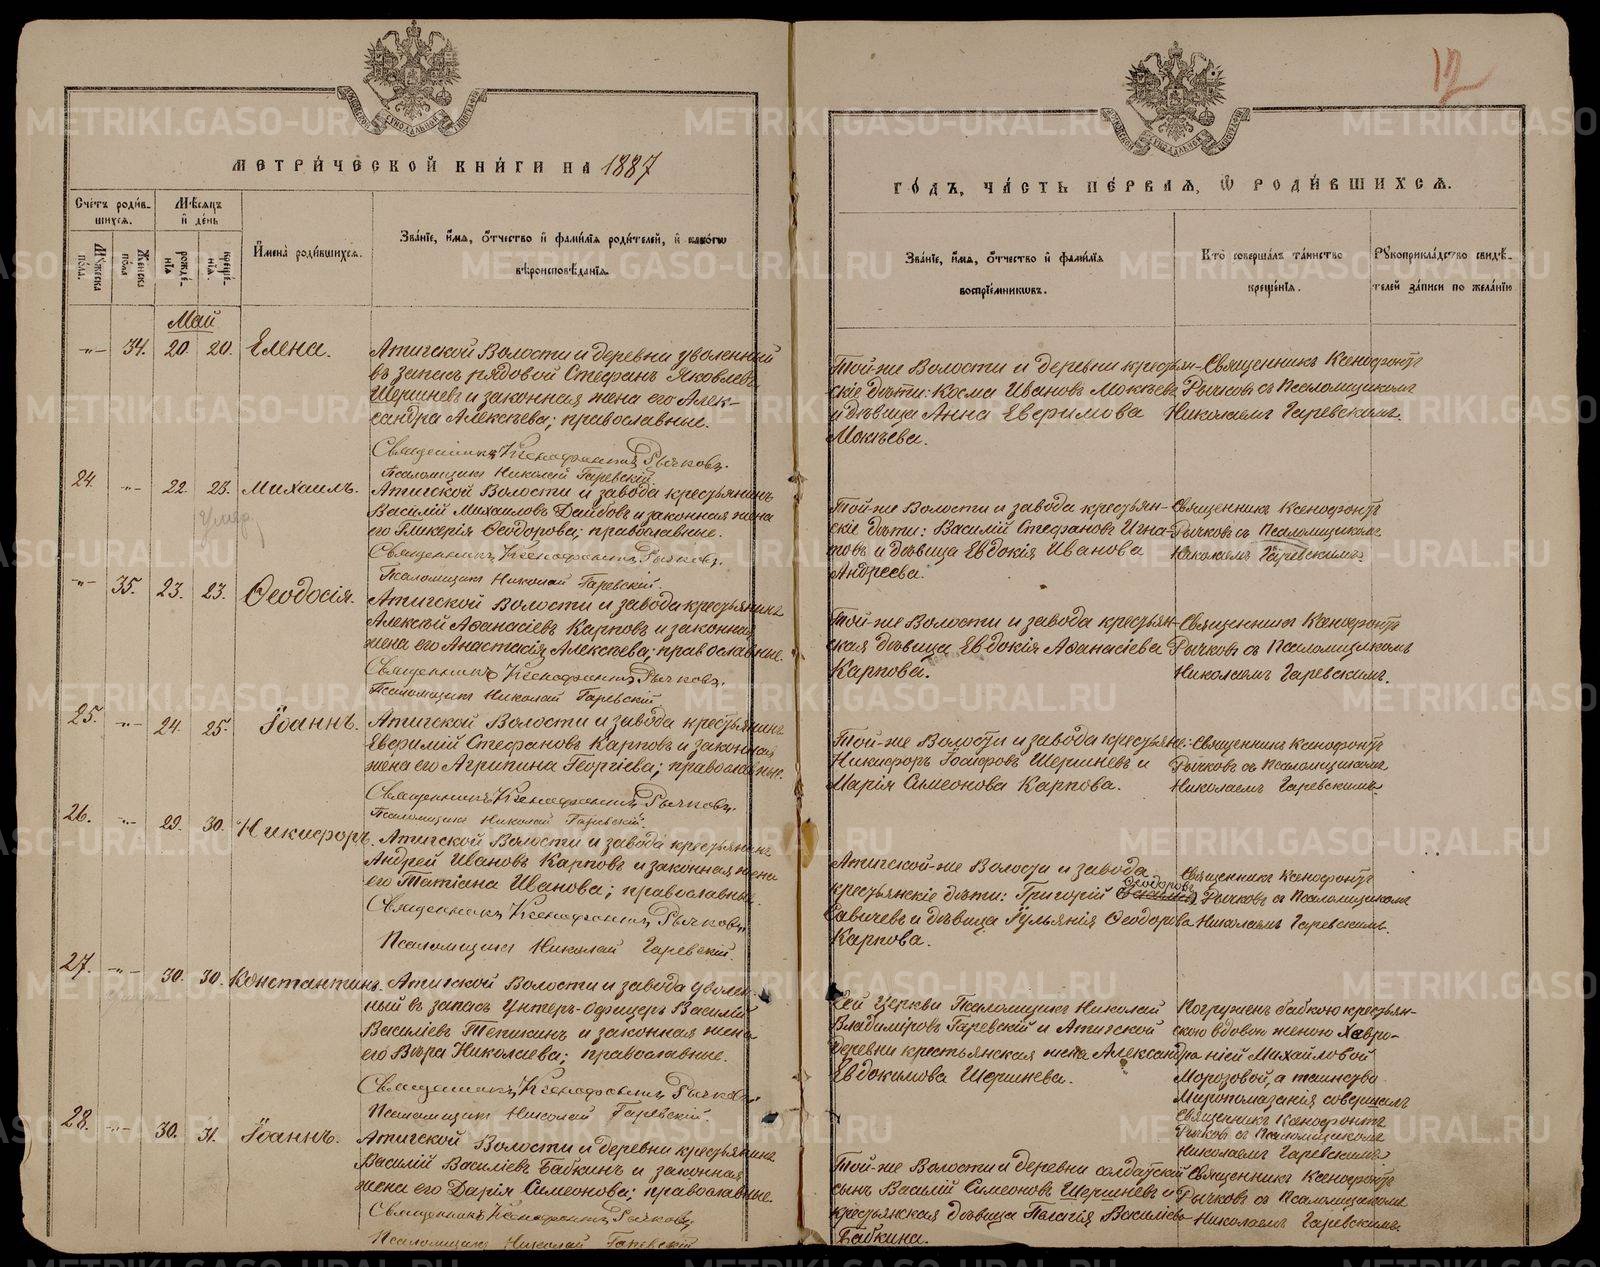 12
МЕТРИ́ЧЕСКОЙ КНИ́ГИ НА 1887
ГО́ДЪ, ЧА́СТЬ ПЕ́РВАЯ, Ѡ РОДИ́ВШИХСЯ.
Сче́тъ роди́в-
шихся.
Мꙋжеска по́ла.
Женска по́ла
Мѣ́сяцъ
и де́нь
рожде́-
нїя
креще́-
нїя.
И҆мена̀ роди́вшихся.
Зва́нїе, и҆́мя, ѻ҆́тчество и҆ фамѝлїя роди́телей, и҆ како́гѡ
вѣроисповѣ́данїя.
Зва́нїе, и҆́мя, ѻ҆́тчество и҆ фамѝлїя
воспрїе́мникѡвъ.
Кто̀ соверша́лъ та́инство
креще́нїя.
Рꙋкоприкла́дство свидѣ́-
телей за́писи по жела́нїю
Май
-"- 34. 20. 20. Елена.
Атигской Волости и деревни уволенный
въ запасъ рядовой Стефанъ Яковлевъ
Шершневъ и законная жена его Алек-
сандра Алексѣева; православные.
Священникъ Ксенофонтъ Рычковъ.
Псаломщикъ Николай Гаревскій
Той-же Волости и деревни крестьян-
скіе дѣти: Косма Ивановъ Мокѣевъ
и дѣвица Анна Евфимова
Мокѣева.
Священникъ Ксенофонтъ
Рычковъ съ Псаломщикомъ
Николаемъ Гаревскимъ.
24. -"- 22. 23. Михаилъ.
умер
Атигской Волости и завода крестьянинъ
Василій Михаиловъ и законная жена
его Гликерія Ѳеодорова; православные.
Священникъ Ксенофонтъ Рычковъ.
Псаломщикъ Николай Гаревскій.
Той-же Волости и завода крестьян-
скіе дѣти: Василій Стефановъ Игна-
товъ и дѣвица Евдокія Иванова
Андреева.
Священникъ Ксенофонтъ
Рычковъ съ Псаломщикомъ
Николаемъ Гаревскимъ.
-"- 35. 23. 23. Ѳеодосія.
Атигской Волости и завода крестьянинъ
Алексій Аѳанасіевъ Карповъ и законная
жена его Анастасія Алексѣева; православные.
Священникъ Ксенофонтъ Рычковъ.
Псаломщикъ Николай Гаревскій
Той-же Волости и завода крестьян-
ская дѣвица Евдокія Аѳанасіева
Карпова.
Священникъ Ксенофонтъ
Рычковъ съ Псаломщикомъ
Николаемъ Гаревскимъ.
25. -"- 24. 25. Іоаннъ.
Атигской Волости и завода крестьянинъ
Евфимій Стефановъ Карповъ и законная
жена его Агрипина Георгіева; православные.
Священникъ Ксенофонтъ Рычковъ.
Псаломщикъ Николай Гаревскій.
Той-же Волости и завода крестьяне:
Никифоръ Іосифовъ Шершневъ и
Марія Симеонова Карпова.
Священникъ Ксенофонтъ
Рычковъ съ Псаломщикомъ
Николаемъ Гаревскимъ.
26. -"- 29. 30. Никифоръ.
Атигской Волости и завода крестьянинъ
Андрей Ивановъ Карповъ и законная жена
его Татіана Иванова; православные.
Священникъ Ксенофонтъ Рычковъ.
Псаломщикъ Николай Гаревскій.
Атигской-же Волости и завода
крестьянскіе дѣти: Григорій Ѳеодоровъ
Савичевъ и дѣвица Іульянія Ѳеодорова
Карпова.
Священникъ Ксенофонтъ
Рычковъ съ Псаломщикомъ
Николаемъ Гаревскимъ.
27. -"- 30. 30. Константинъ.
Атигской Волости и завода уволен-
ный въ запасъ Унтеръ-Офицеръ Василій
Василіевъ Тепикинъ и законная жена
его Вѣра Николаева; православные.
Священникъ Ксенофонтъ Рычковъ.
Псаломщикъ Николай Гаревскій.
Сей Церкви Псаломщикъ Николай
Владиміровъ Гаревскій и Атигской
деревни крестьянская жена Александра
Евдокимова Шершнева.
Погруженъ бабкою крестьян-
скою вдовою женою Хавро-
ніей Михайловой
Морозовой, а таинство
Миропомазанія совершалъ
Священникъ Ксенофонтъ
Рычковъ съ Псаломщикомъ
Николаемъ Гаревскимъ.
28. -"- 30. 31. Іоаннъ.
Атигской Волости и деревни крестьянинъ
Василій Василіевъ Бабкинъ и законная
жена его Дарія Симеонова; православные.
Священникъ Ксенофонтъ Рычковъ
Псаломщикъ Николай Гаревскій
Той-же Волости и деревни солдатскій
сынъ Василій Симеоновъ Шершневъ и
крестьянская дѣвица Пелагія Василіева
Бабкина.
Священникъ Ксенофонтъ
Рычковъ съ Псаломщикомъ
Николаемъ Гаревскимъ.
METRIKI.GASO-URAL.RU